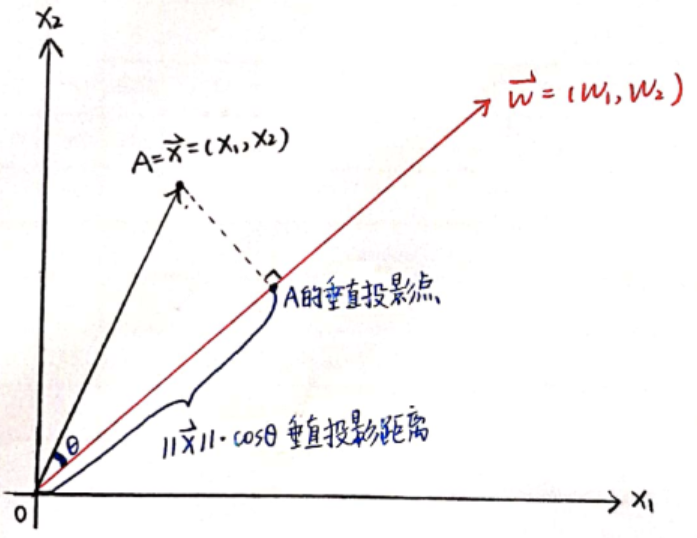 X₂
W⃗ = (W₁, W₂)
A=X⃗=(X₁, X₂)
A的垂直投影点
θ
||X⃗||·cosθ 垂直投影距离
0
X₁